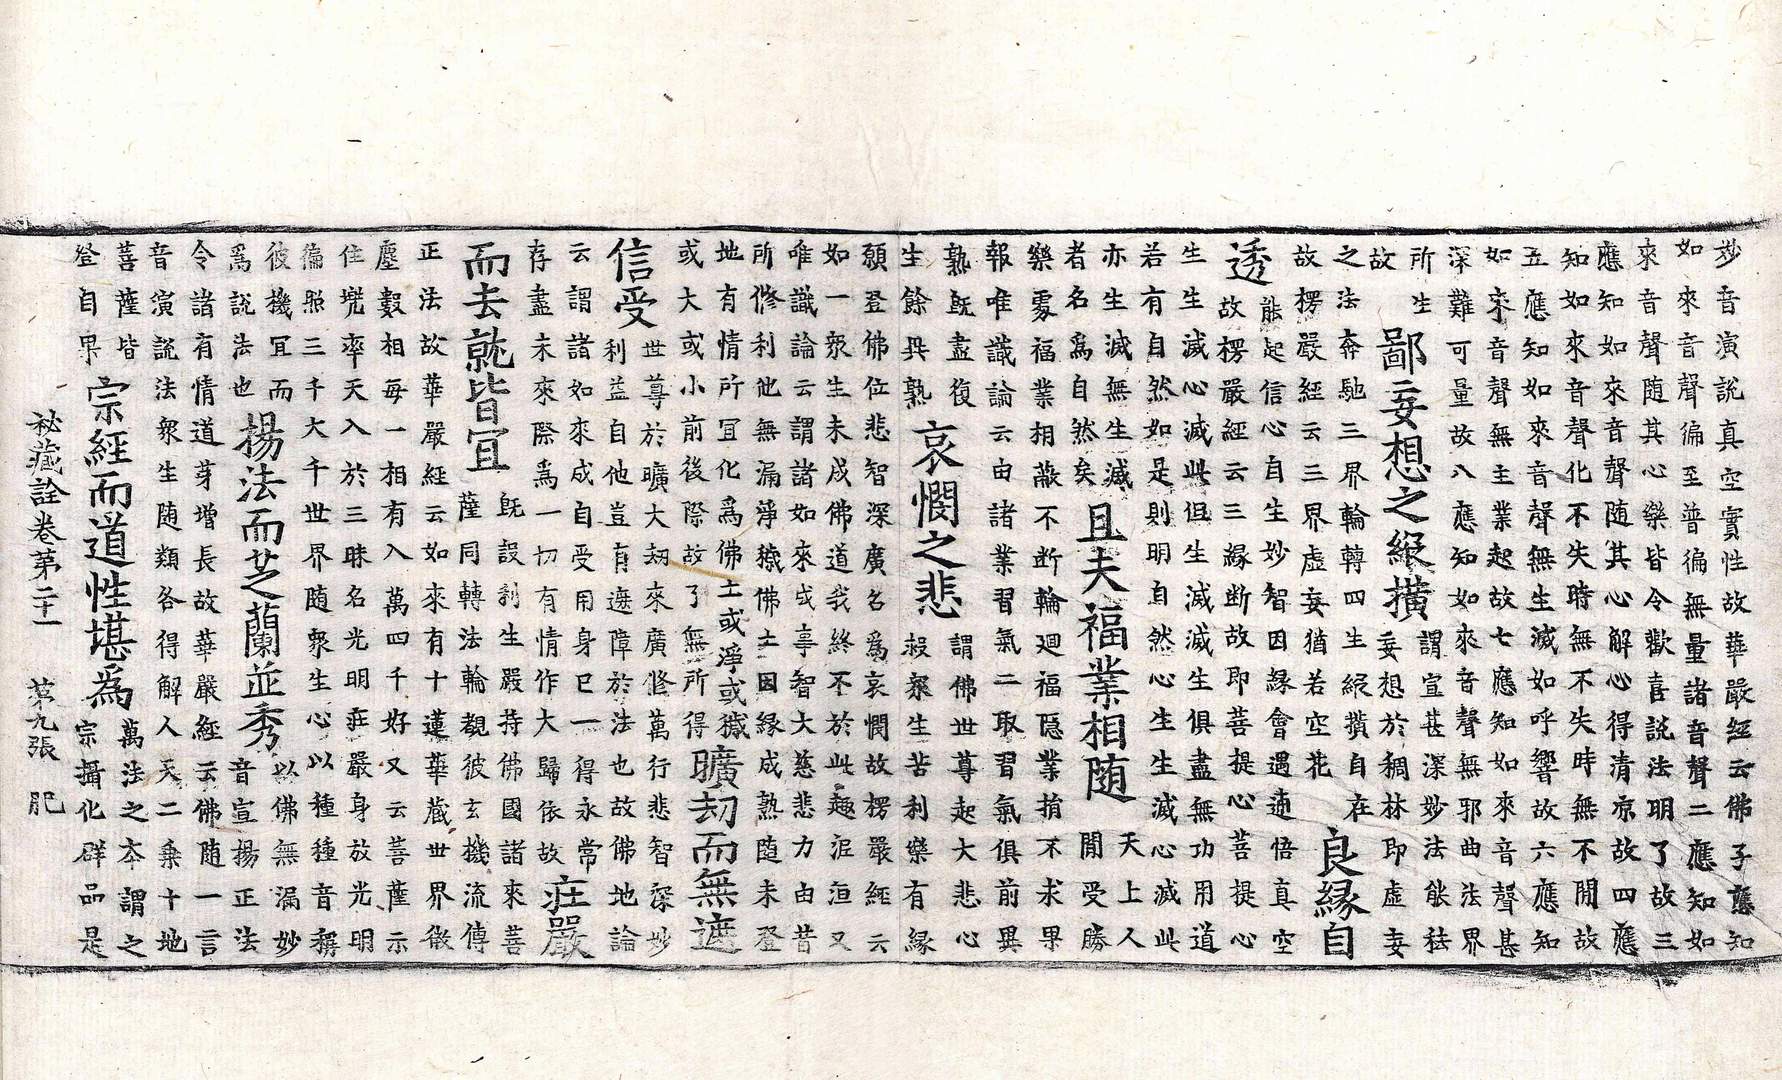 妙音演說真空實性故華嚴經云佛子應知
如來音聲徧至普徧無量諸音聲二應知如
來音聲随其心樂皆令歡喜說法明了故三
應知如來音聲随其心解心得清凉故四應
知如來音聲化不失時無不失時無不聞故
五應知如來音聲無生滅如呼響故六應知
如來音聲無主業起故七應知如來音聲甚
深難可量故八應知如來音聲無邪曲法界
所生
故
鄙妄想之縱撗
謂宣甚深妙法能祛
妄想於稠林即虛妄
之法奔馳三界輪轉四生縱撗自在
故楞嚴經云三界虛妄猶若空花
良緣自
透
能起信心自生妙智因緣會遇適悟真空
故楞嚴經云三緣断故即菩提心菩提心
生生滅心滅此但生滅滅生俱盡無功用道
若有自然如是則明自然心生生滅心滅此
亦生滅無生滅
者名爲自然矣
且夫福業相随
天上人
間受勝
樂䖏福業相蔽不断輪廻福隱業揹不求果
報唯識論云由諸業習氣二取習氣俱前異
熟旣盡復
生餘異熟
哀憫之悲
謂佛世尊起大悲心
殺衆生苦利樂有緣
願登佛位悲智深廣名爲哀憫故楞嚴經云
如一衆生未成佛道我終不於此趣泥洹又
唯識論云謂諸如來成事智大慈悲力由昔
所修利他無漏淨穢佛土因緣成熟随未登
地有情所冝化爲佛土或淨或穢
或大或小前後際故了無所得
曠劫而無遮
信受
世尊於曠大刼來廣修萬行悲智深妙
利益自他豈有遮障於法也故佛地論
云謂諸如來成自受用身巳一得永常
存盡未來際爲一切有情作大歸依故
莊嚴
而去就皆冝
旣設刹生嚴持佛國諸來菩
薩同轉法輪覩彼玄機流傳
正法故華嚴經云如來有十蓮華藏世界微
塵數相每一相有入萬四千好又云菩薩示
住兠率天入於三昧名光明莊嚴身放光明
徧照三千大千世界随衆生心以種種音稱
彼機冝而
爲說法也
揚法而芝蘭並秀
以佛無漏妙
音宣揚正法
令諸有情道芽增長故華嚴經云佛随一言
音演說法衆生随類各得解人天二乘十地
菩薩皆
登自界
宗經而道性堪爲
萬法之夲謂之
宗攝化群品是
祕藏詮卷第二十一 第九張 肥